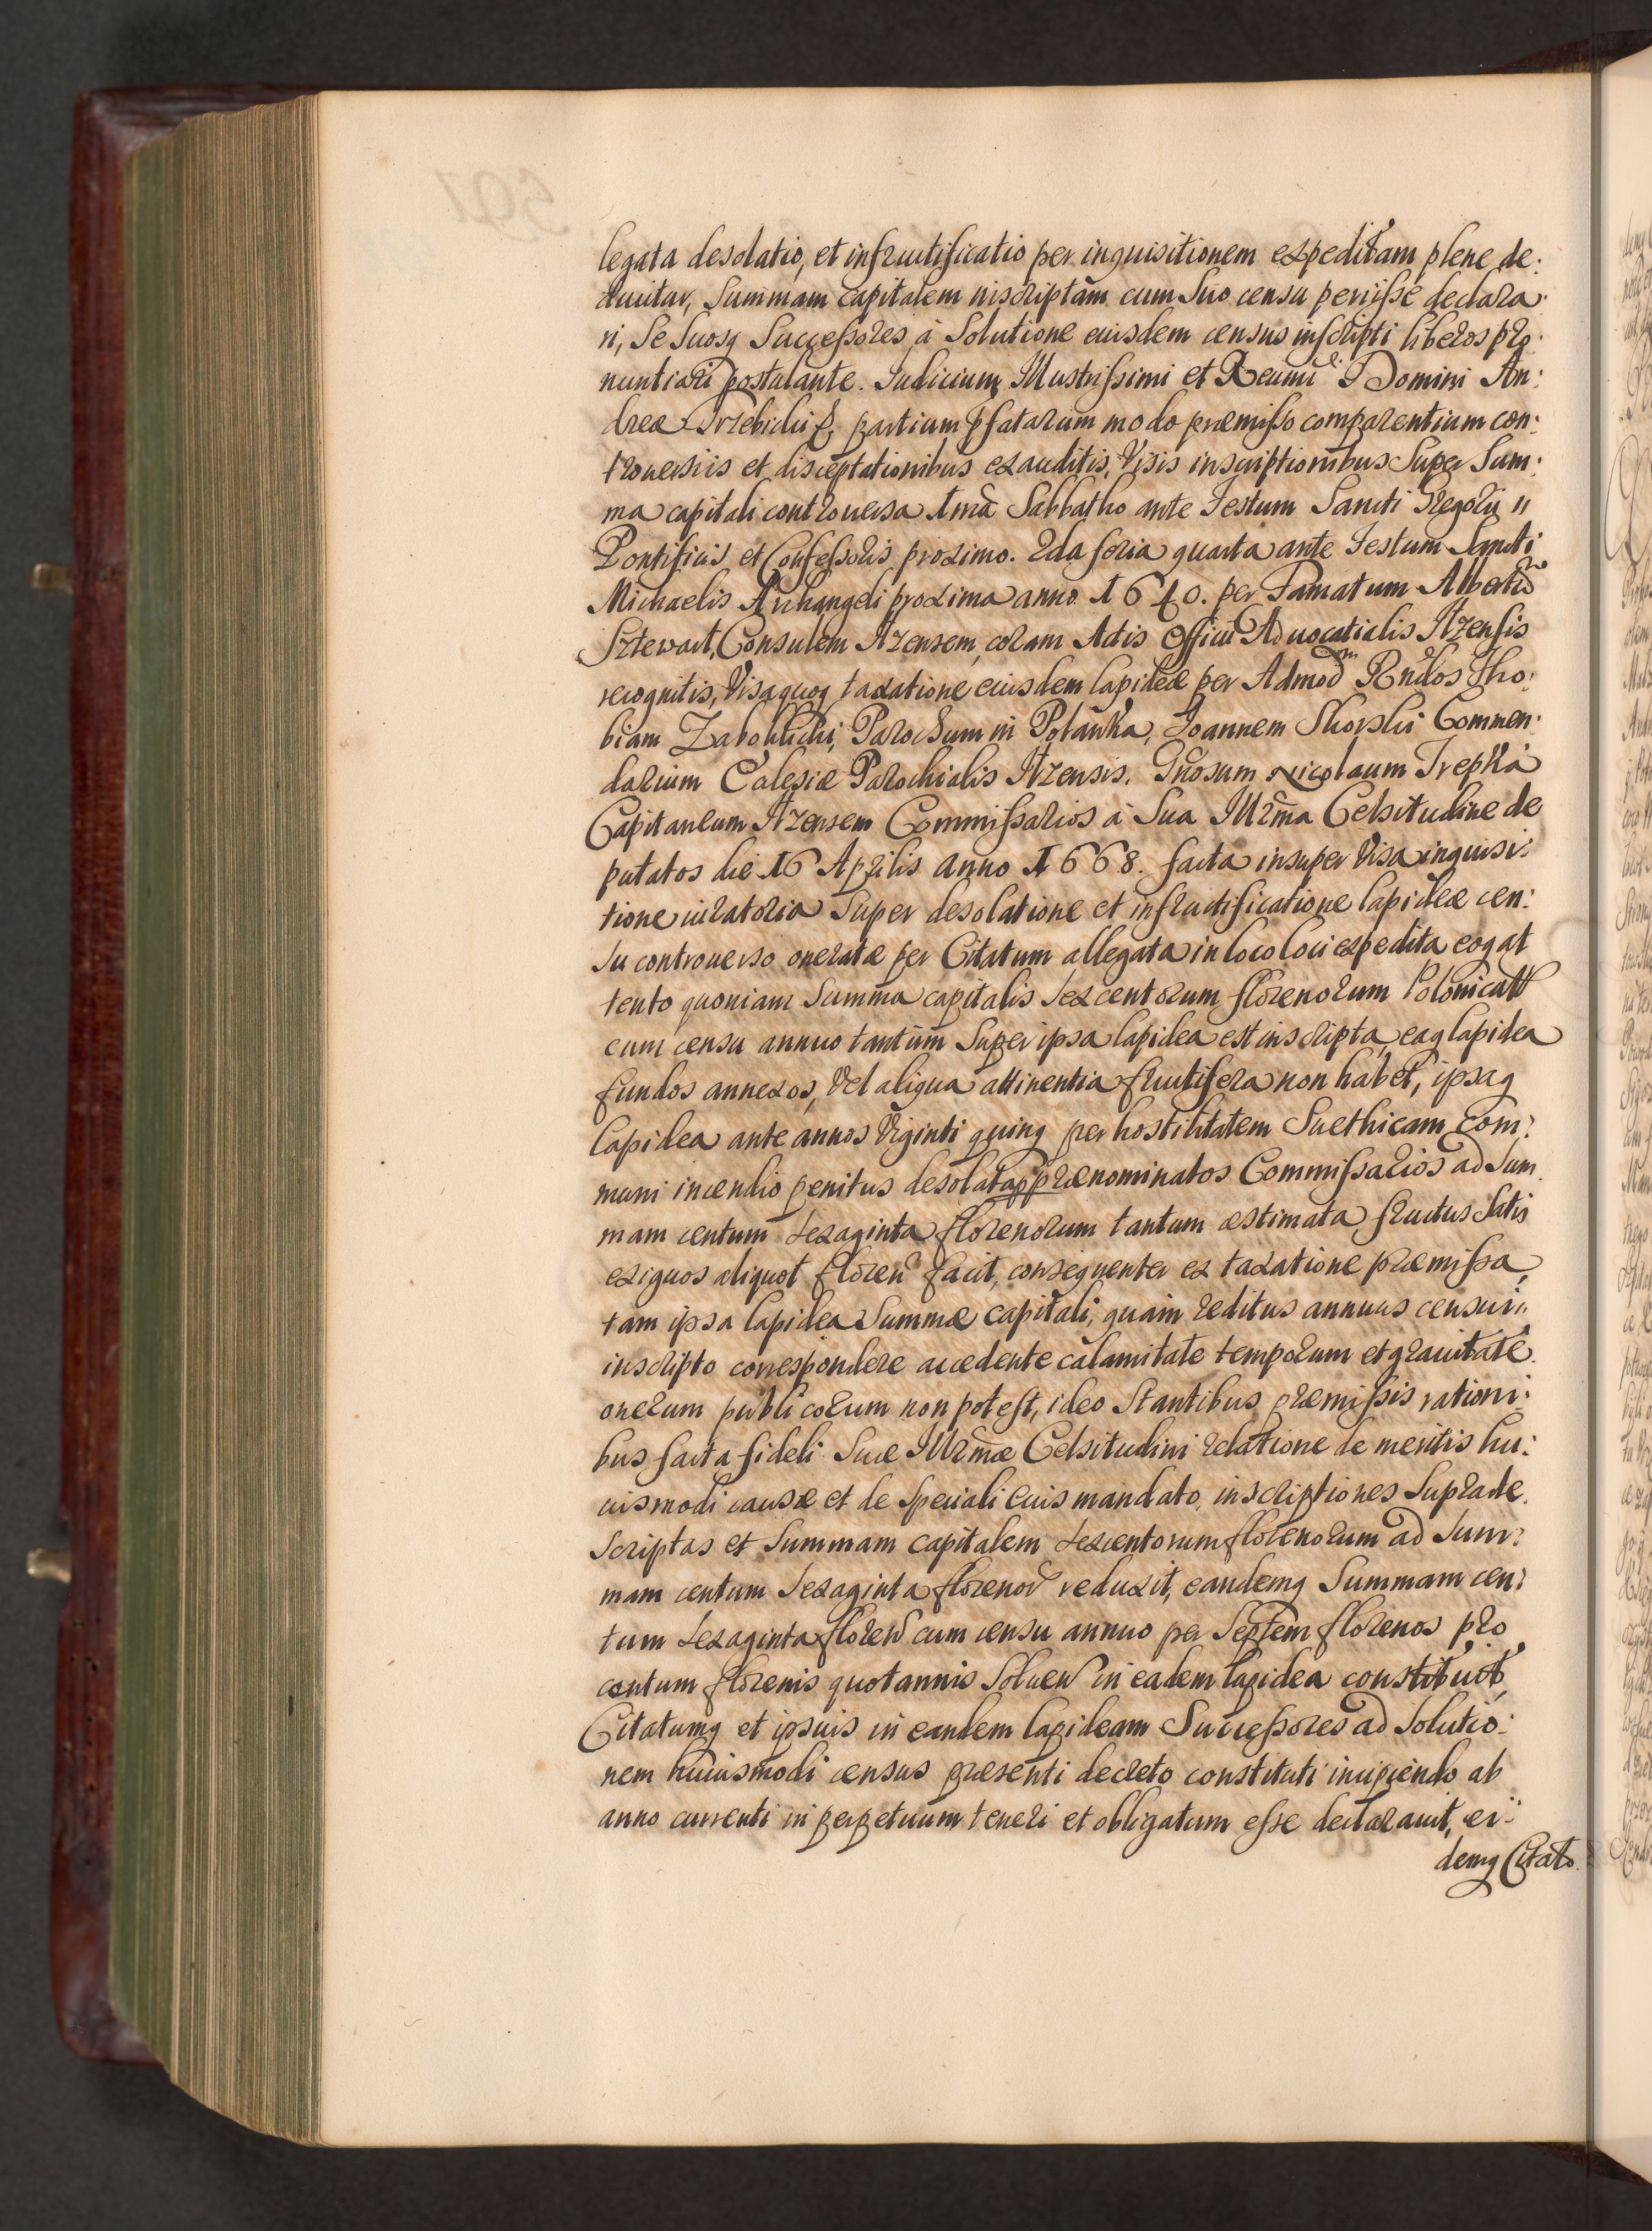 legata desolatio, et infructificatio per inquisitionem expeditam plene de:
ducitur, Summam capitalem inscriptam cum Suo censu perijsse declara:
ri, Se Suosq Successores à Solutione eiusdem census inscripti liberos pro:
nuntiari postulante. Iudicium Illustrissimi et Reumi D. Domini An:
dreæ Trzebicki &, partium pfatarum modo præmisso comparentium con:
trouersiis et disceptationibus exauditis, Visis inscriptionibus Super Sum:
ma capitali controuersa 1ma Sabbatho ante Festum Sancti Gregorij
Pontificis et Confessoris proximo. 2da feria quarta ante Festum Sancti
Michaelis Archangeli proxima anno 1640. per Famatum Albertū
Sztewart, Consulem Ilzensem, coram Actis Officii Aduocatialis Ilzensis
recognitis, Visa quoq taxatione eiusdem lapideæ per Admodm Rndos Tho:
biam Zabokliцki, Parochum in Potawka, Joannem Skorski Commen:
darium Ecclesiæ Parochialis Ilzensis. Gnosum Nicolaum Trepka
Capitaneum Ilzensem Commissarios à Sua Illrma Celsitudine de
putatos die 16 Aprilis anno 1668. facta insuper Visa inquisi:
tione iuratoria Super desolatione et infructificatione lapideæ cen:
su controuerso oneratæ per Citatum allegata in loco loci expedita eoq at
tento quoniam Summa capitalis Sexcentorum florenorum Polonicall
cum censu annuo tantum Super ipsa lapidea est inscripta, eaq lapidea
fundos annexos, Vel aliqua attinentia fructifera non habet, ipsaq
lapidea ante annos Viginti quinq per hostilitatem Suethicam com:
muni incendio penitus desolata p prænominatos Commissarios ad Sum
mam centum Sexaginta florenorum tantum æstimata fructus Satis
exiguos aliquot floren facit, consequenter ex taxatione præmissa,
tam ipsa lapidea Summæ capitali, quam reditus annuus censui
inscripto correspondere accedente calamitate temporum et grauitate
onerum publicorum non potest, ideo Stantibus præmissis rationi:
bus facta fideli Suæ Illrmæ Celsitudini relatione de meritis hu:
iusmodi causæ et de Speciali eius mandato, inscriptiones Suprade
scriptas et Summam capitalem Sexcentorum florenorum ad Sum:
mam centum Sexaginta florenor reduxit, eandemq Summam cen:
tum Sexaginta floren cum censu annuo per Septem florenos pro
centum florenis quotannis Soluen in eadem lapidea constituit,
Citatumq et ipsius in eandem lapideam Successores ad Solutio:
nem huiusmodi census præsenti decreto constituti incipiendo ab
anno currenti in perpetuum teneri et obligatum esse declarauit, ei:
demq Citato